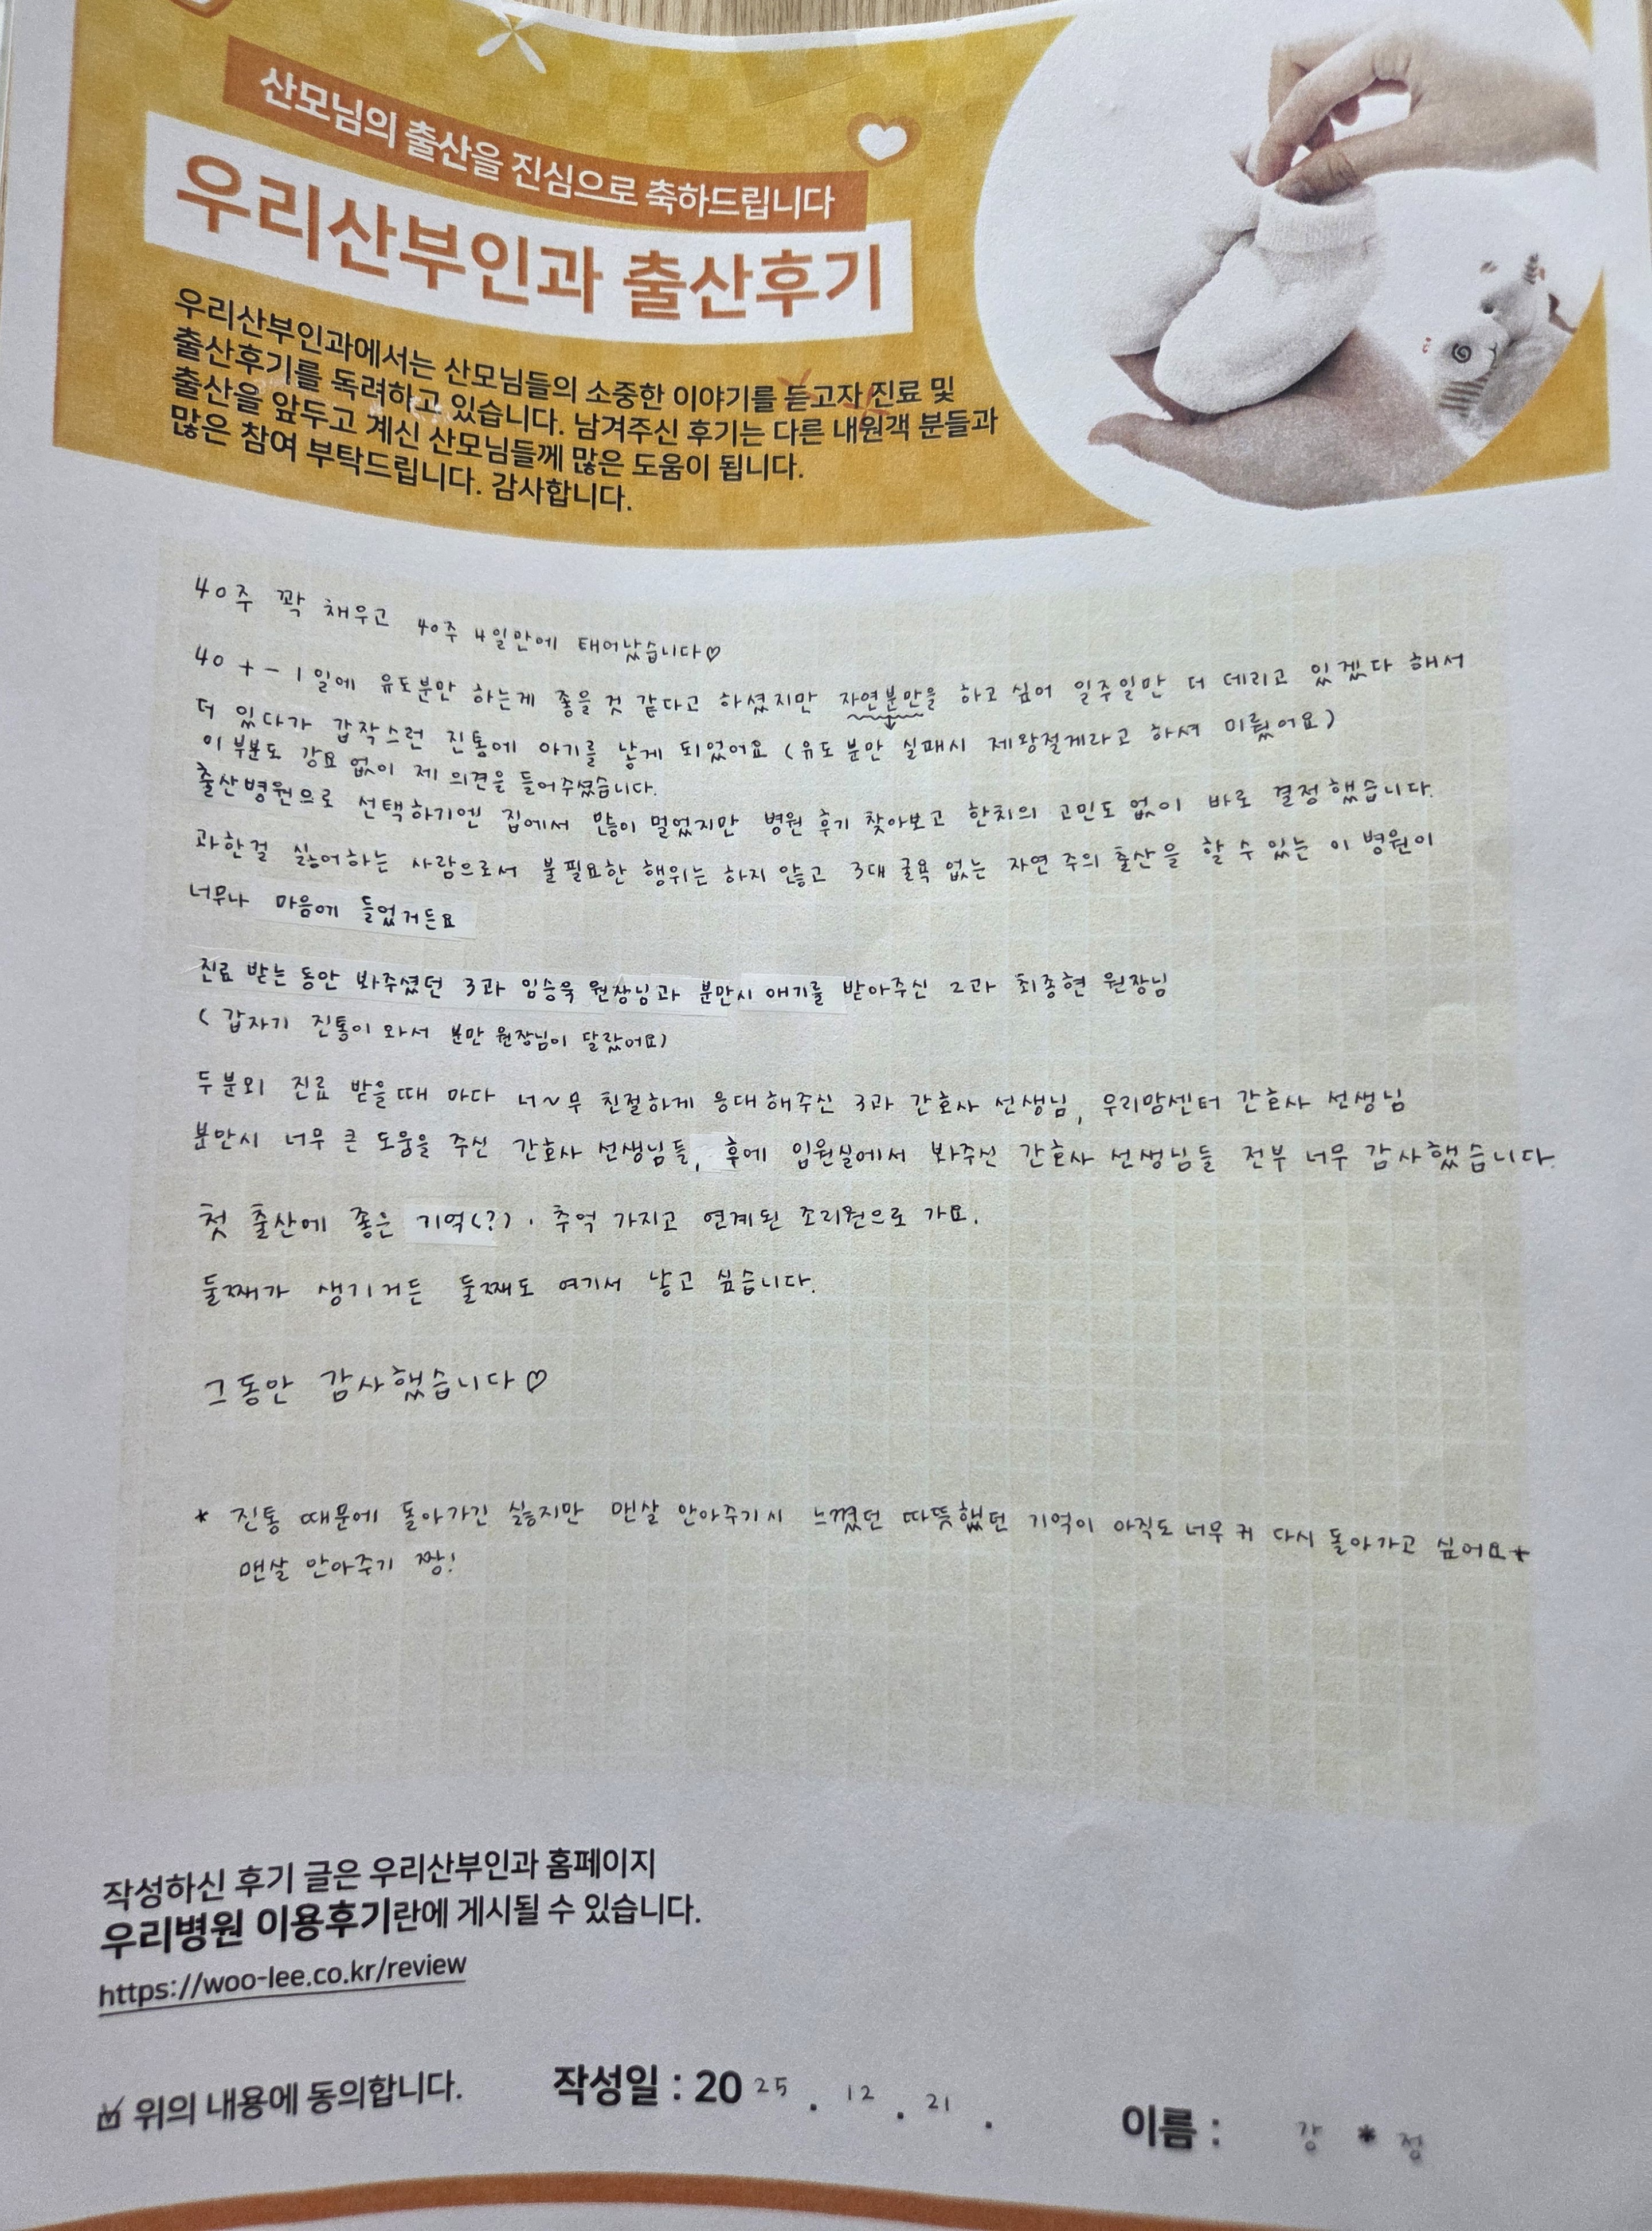 산모님의 출산을 진심으로 축하드립니다
우리산부인과 출산후기
우리산부인과에서는 산모님들의 소중한 이야기를 듣고자 진료 및
출산후기를 독려하고 있습니다. 남겨주신 후기는 다른 내원객 분들과
출산을 앞두고 계신 산모님들께 많은 도움이 됩니다.
많은 참여 부탁드립니다. 감사합니다.
40주 꽉 채우고 40주 4일만에 태어났습니다♡
40 + - 1일에 유도분만 하는게 좋을 것 같다고 하셨지만 자연분만을 하고 싶어 일주일만 더 데리고 있겠다 해서
더 있다가 갑작스런 진통에 아기를 낳게 되었어요 (유도분만 실패시 제왕절개라고 하셔 미뤘어요)
이 부분도 강요 없이 제 의견을 들어주셨습니다.
출산병원으로 선택하기엔 집에서 많이 멀었지만 병원 후기 찾아보고 한치의 고민도 없이 바로 결정했습니다.
과한걸 싫어하는 사람으로서 불필요한 행위는 하지 않고 3대 굴욕 없는 자연주의 출산을 할 수 있는 이 병원이
너무나 마음에 들었거든요
진료 받는 동안 봐주셨던 3과 임승욱 원장님과 분만시 애기를 받아주신 2과 최종현 원장님
( 갑자기 진통이 와서 분만 원장님이 달랐어요)
두분외 진료 받을때 마다 너~무 친절하게 응대해주신 3과 간호사 선생님, 우리맘센터 간호사 선생님
분만시 너무 큰 도움을 주신 간호사 선생님들, 후에 입원실에서 봐주신 간호사 선생님들 전부 너무 감사했습니다.
첫 출산에 좋은 기억(?) · 추억 가지고 연계된 조리원으로 가요.
둘째가 생기거든 둘째도 여기서 낳고 싶습니다.
그동안 감사했습니다♡
* 진통 때문에 돌아가긴 싫지만 맨살 안아주기시 느꼈던 따뜻했던 기억이 아직도 너무 커 다시 돌아가고 싶어요*
맨살 안아주기 짱!
작성하신 후기 글은 우리산부인과 홈페이지
우리병원 이용후기란에 게시될 수 있습니다.
https://woo-lee.co.kr/review
위의 내용에 동의합니다. 작성일 : 2025. 12. 21. 이름 : 강 * 정